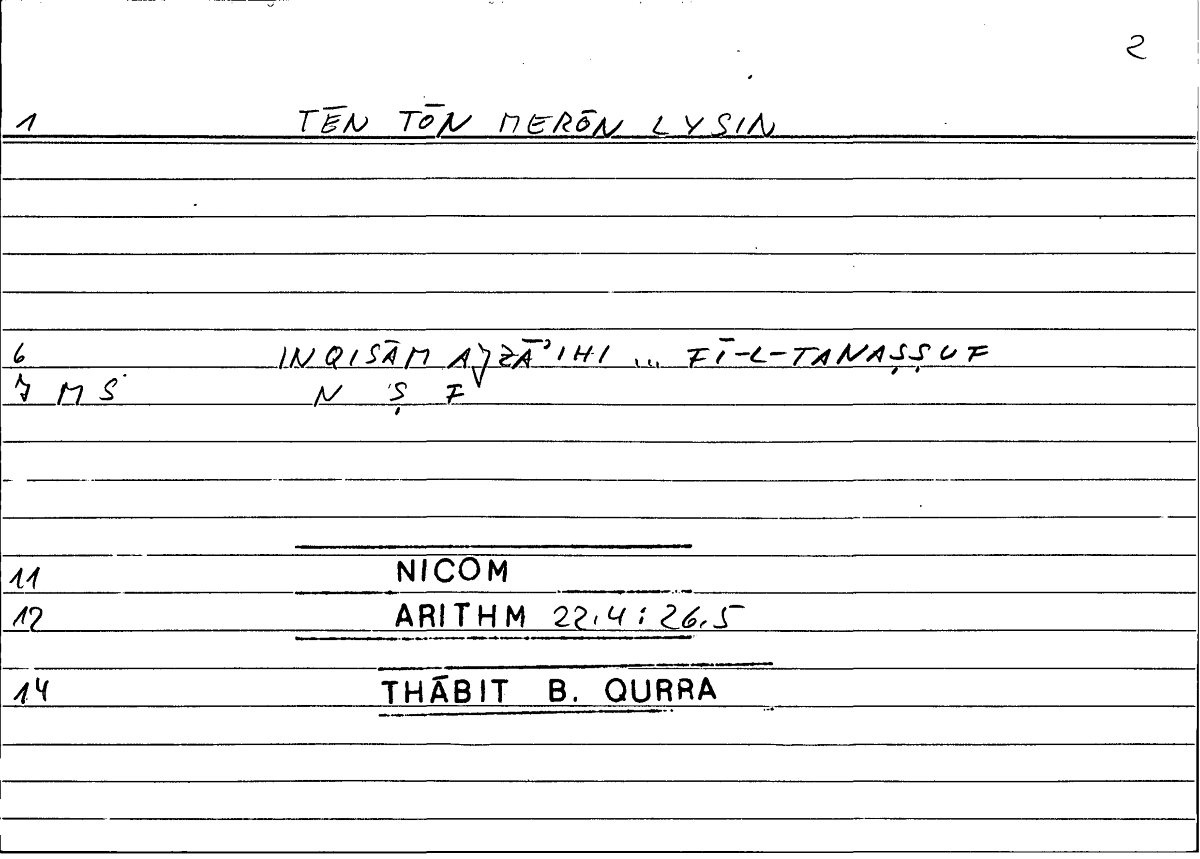 2
1 TĒN TŌN MERŌN LYSIN
6 INQISĀM AJZĀʾIHI ... FĪ-L-TANAṢṢUF
7 M S N Ṣ F
11 NICOM
12 ARITHM 22,4 : 26,5
14 THĀBIT B. QURRA